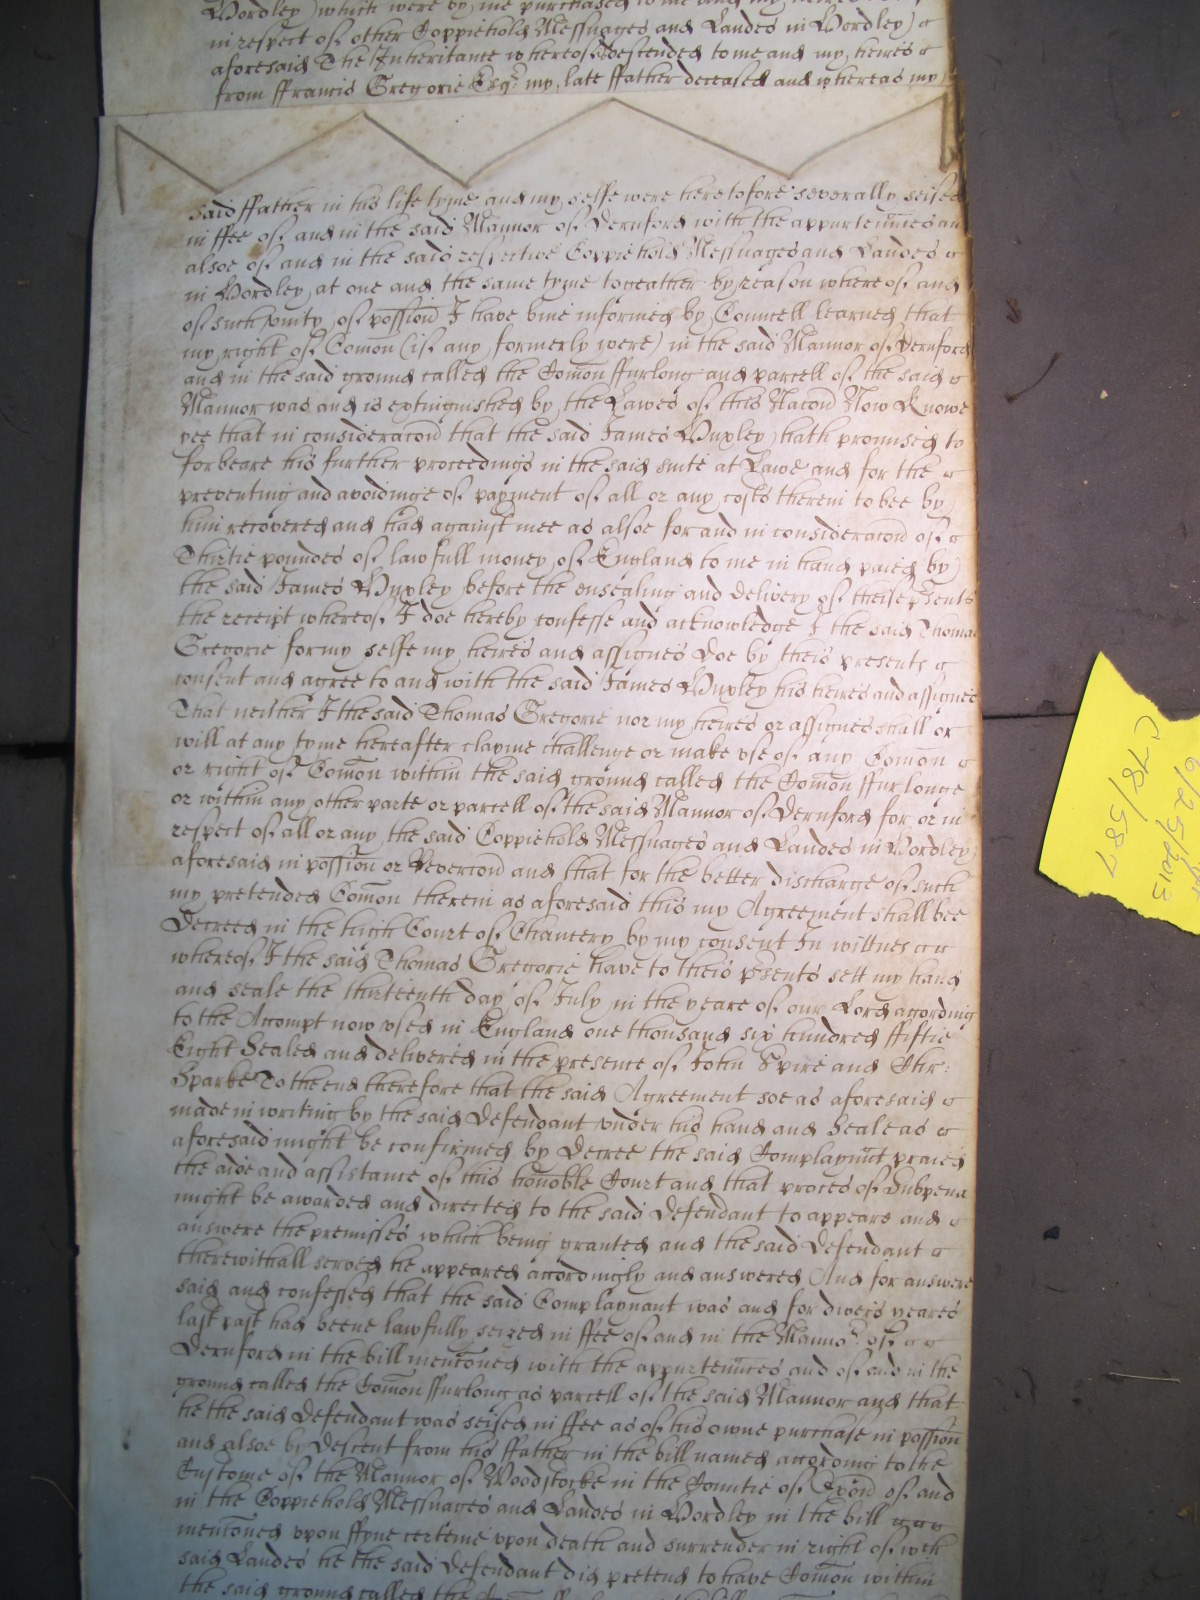 Wordley) which were by me purchased to me and my heires
in respect of other Coppiehold Messuages and Landes in Wordley)
aforesaid The Inheritance whereof descended to me and my heires
from ffrancis Gregorie Esqr my late ffather deceased and whereas my
said ffather in his life tyme and my selfe were heretofore severally seised
in ffee of and in the said Mannor of Dernford with the appurtennces an
alsoe of and in the said respective Coppiehold Messuages and Landes
in Wordley at one and the same tyme togeather by reason whereof and
of such vnity of possion I have bine informed by Councell learned that
my right of Comon (if any formerly were) in the said Mannor of Dernford
and in the said ground called the Comon ffurlong and parcell of the said
Mannor was and is extinguished by the Lawes of this Nacon Now Knowe
yee that in consideracon that the said James Huxley hath promised to
forbeare his further proceedings in the said suite at Lawe and for the
preventing and avoidinge of payment of all or any costs therein to bee by
him recovered and had against mee as alsoe for and in consideracon of
Thirtie poundes of lawfull money of England to me in hand paied by
the said James Huxley before the ensealing and delivery of theise psents
the receipt whereof I doe hereby confesse and acknowledge I the said Thomas
Gregorie for my selfe my heires and assignes Doe by theis presents
consent and agree to and with the said James Huxley his heires and assignes
That neither I the said Thomas Gregorie nor my heires or assignes shall or
will at any tyme hereafter clayme challenge or make vse of any Comon
or right of Comon within the said ground called the Comon ffurlonge
or within any other parte or parcell of the said Mannor of Dernford for or in
respect of all or any the said Coppiehold Messuages and Landes in Wordley
aforesaid in possion or Revercon and that for the better discharge of such
my pretended Comon therein as aforesaid this my Agreement shall bee
Decreed in the high Court of Chancery by my consent In wittnes
whereof I the said Thomas Gregorie have to theis psents sett my hand
and seale the thirteenth day of July in the yeare of our Lord according
to the Accompt now vsed in England one thousand six hundred ffiftie
Eight Sealed and delivered in the presence of John Spire and Chr:
Sparke To the end therefore that the said Agreement soe as aforesaid
made in writing by the said Defendant vnder his hand and Seale as
aforesaid might be confirmed by Decree the said Complaynnt praied
the aide and assistance of this honoble Court and that proces of Subpena
might be awarded and directed to the said Defendant to appeare and
answere the premisses which being granted and the said Defendant
therewithall served he appeared accordingly and answered And for answere
said and confessed that the said Complaynant was and for divers yeares
last past had beene lawfully seized in ffee of and in the Mannor of
Dernford in the bill mentoned with the appurtennces and of and in the
ground called the Comon ffurlong as parcell of the said Mannor and that
he the said Defendant was seised in ffee as of his owne purchase in possion
and alsoe by Descent from his ffather in the bill named according to the
Custome of the Mannor of Woodstocke in the Countie of Oxon of and
in the Coppiehold Messuages and Landes in Wordley in the bill
mentoned vpon ffyne certeine vpon death and surrender in right of wch
said Landes he the said Defendant did pretend to have Comon within
the said ground called the
6/25/2013
C 78/587